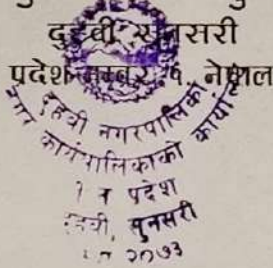 दुहवी, सुनसरी
प्रदेश नम्बर १, नेपाल
दुहवी नगरपालिका
नगर कार्यपालिकाको कार्यालय
१ न प्रदेश
दुहवी, सुनसरी
२०७३